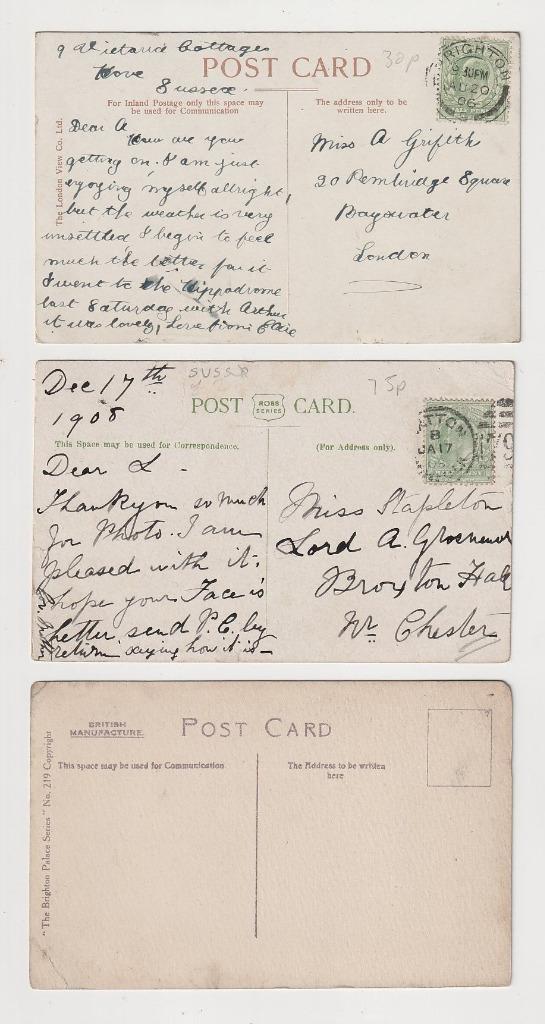 9 Victoria Cottages
Hove
Sussex.
POST CARD
30p
BRIGHTON
9 30PM
AU 20
06
For Inland Postage only this space may
be used for Communication
The address only to be
written here.
The London View Co. Ltd.
Dear A
How are you
getting on. I am just
enjoying myself allright,
but the weather is very
unsettled I begin to feel
much the better for it
I went to the Hippodrome
last Saturday with Arthur
it was lovely, Love from
Miss A Griffith
20 Pembridge Square
Bayswater
London
Dec 17th
1908
SUSSX
75p
POST ROSS SERIES CARD.
B
JA 17
This Space may be used for Correspondence.
(For Address only).
Dear L -
Thankyou so much
for Photo. I am
pleased with it.
hope your Face is
better send P.C. by
return saying how it is -
Miss Stapleton
Lord A. Grosvenor
Broxton Hall
Nr Chester
BRITISH
MANUFACTURE.
POST CARD
This space may be used for Communication
The Address to be written
here
"The Brighton Palace Series" No. 219 Copyright